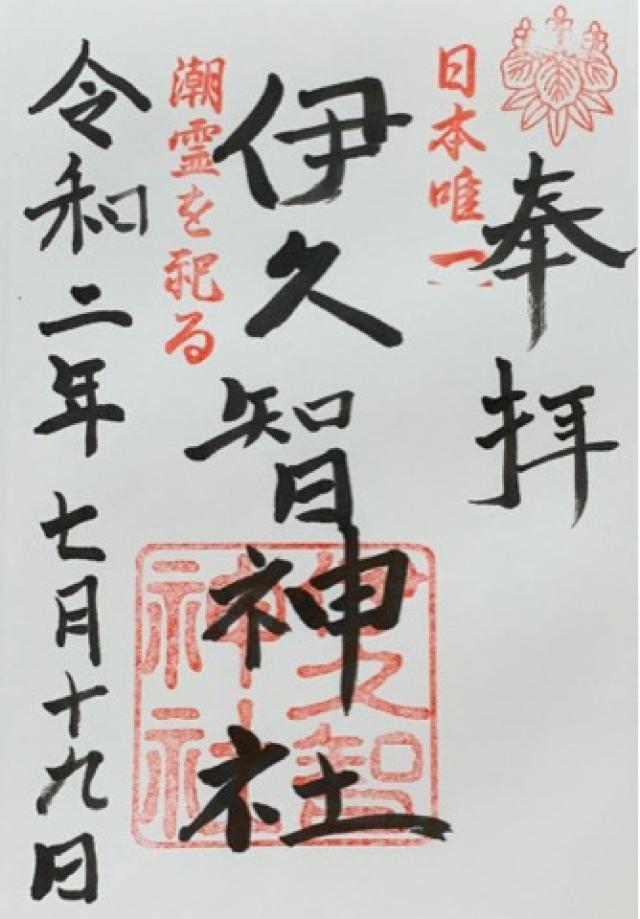 奉拝
日本唯一
伊久智神社
潮霊を祀る
令和二年七月十九日
伊久智神社